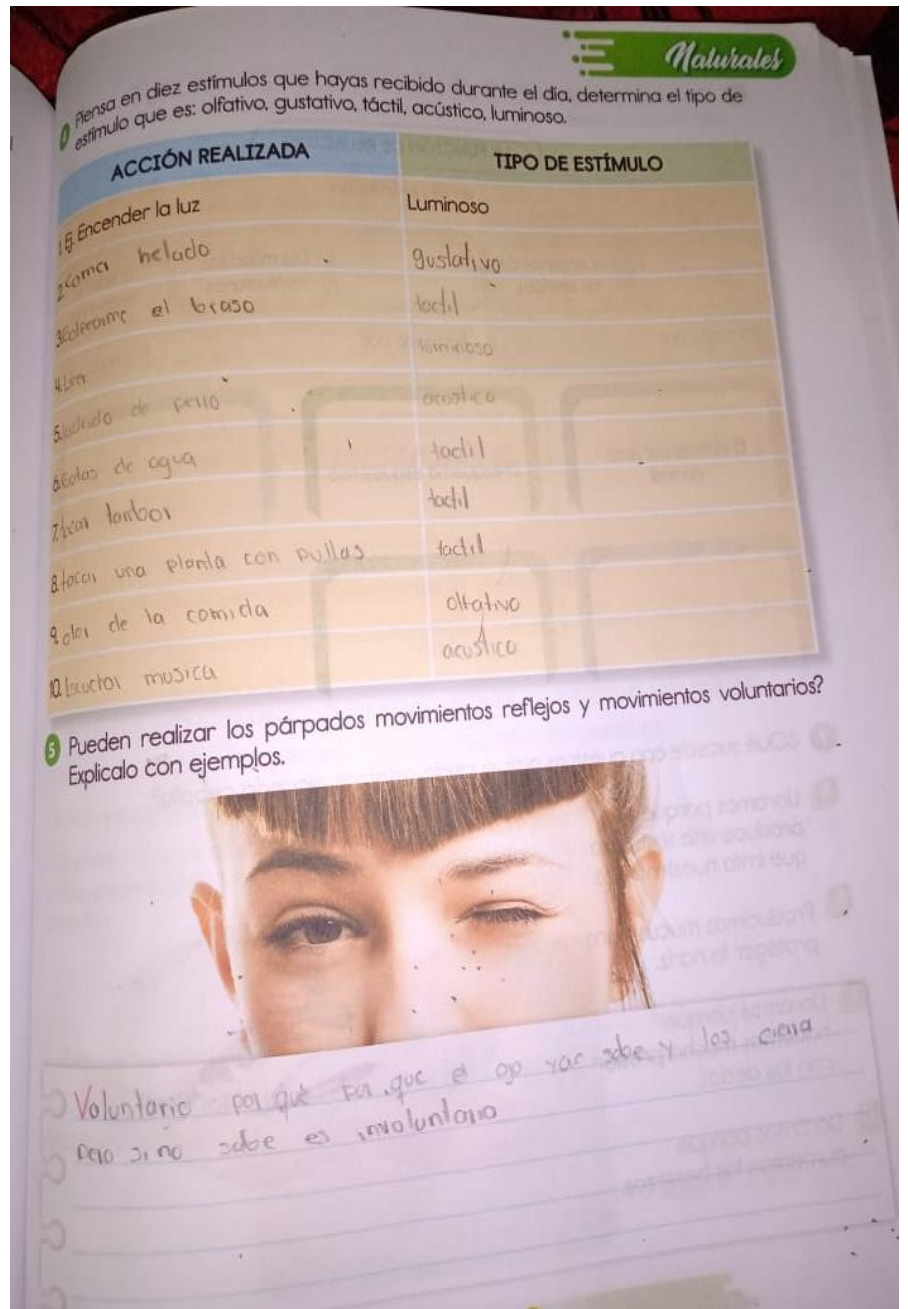 Naturales
Piensa en diez estímulos que hayas recibido durante el día, determina el tipo de
estímulo que es: olfativo, gustativo, táctil, acústico, luminoso.
ACCIÓN REALIZADA TIPO DE ESTÍMULO
1. Ej. Encender la luz Luminoso
2 Comer helado gustativo
3 Golpearme el braso tactil
4. Leer luminoso
5. de perro acustico
6 Gotas de agua tactil
7 tocar tambor tactil
8. tocar una planta con pullas tactil
9. olor de la comida olfativo
10. Escuchar musica acustico
5 Pueden realizar los párpados movimientos reflejos y movimientos voluntarios?
Explicalo con ejemplos.
Voluntario por que por que el ojo sabe y los cierra
pero si no sabe es involuntario